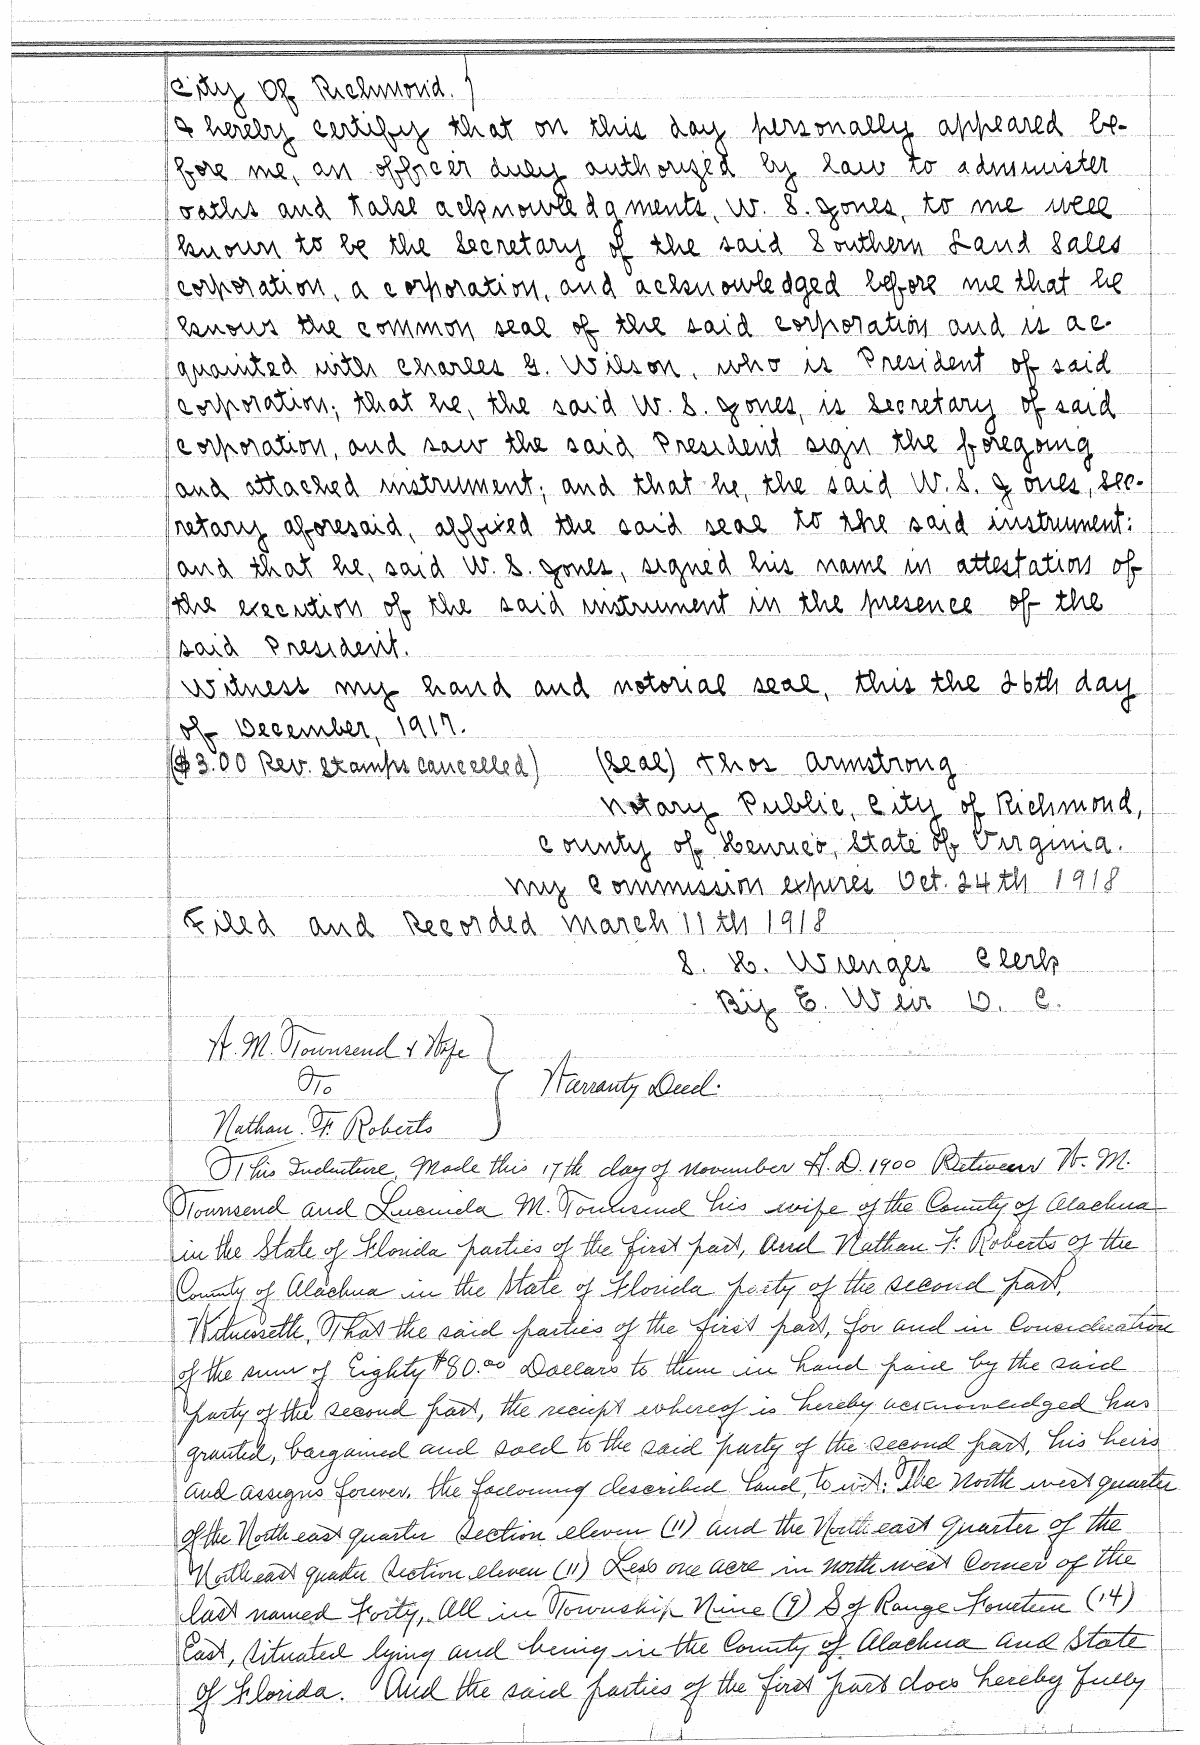 City Of Richmond. )
I hereby certify that on this day personally appeared be-
fore me, an officer duly authorized by law to administer
oaths and take acknowledgments, W. S. Jones, to me well
known to be the Secretary of the said Southern Land Sales
corporation, a corporation, and acknowledged before me that he
knows the common seal of the said corporation and is ac-
quainted with Charles G. Wilson, who is President of said
corporation; that he, the said W. S. Jones, is Secretary of said
corporation, and saw the said President sign the foregoing
and attached instrument; and that he, the said W. S. Jones, Sec-
retary aforesaid, affixed the said seal to the said instrument:
and that he, said W. S. Jones, signed his name in attestation of
the execution of the said instrument in the presence of the
said President.
Witness my hand and notorial seal, this the 26th day
of December, 1917.
($3.00 Rev. stamps cancelled) (Seal) Thos Armstrong
Notary Public, City of Richmond,
County of Henrico, State of Virginia.
My Commission expires Oct. 24th 1918
Filed and Recorded March 11th 1918
S. H. Wienges Clerk
By E. Weir D. C.
A. M. Townsend & Wife
To
Warranty Deed.
Nathan. F. Roberts
This Indenture, Made this 17th day of November A. D. 1900 Between A. M.
Townsend and Lucinda M. Townsend his wife of the County of Alachua
in the State of Florida parties of the first part, And Nathan F. Roberts of the
County of Alachua in the State of Florida party of the second part,
Witnesseth, That the said parties of the first part, for and in Consideration
of the sum of Eighty $80.00 Dollars to them in hand paid by the said
party of the second part, the receipt whereof is hereby acknowledged has
granted, bargained and sold to the said party of the second part, his heirs
and assigns forever, the following described land, to wit: The North west quarter
of the North east quarter Section eleven (11) and the North east quarter of the
North east quarter Section eleven (11) Less one acre in north west Corner of the
last named Forty, All in Township Nine (9) S of Range Fourteen (14)
East, situated lying and being in the County of Alachua and State
of Florida. And the said parties of the first part does hereby fully